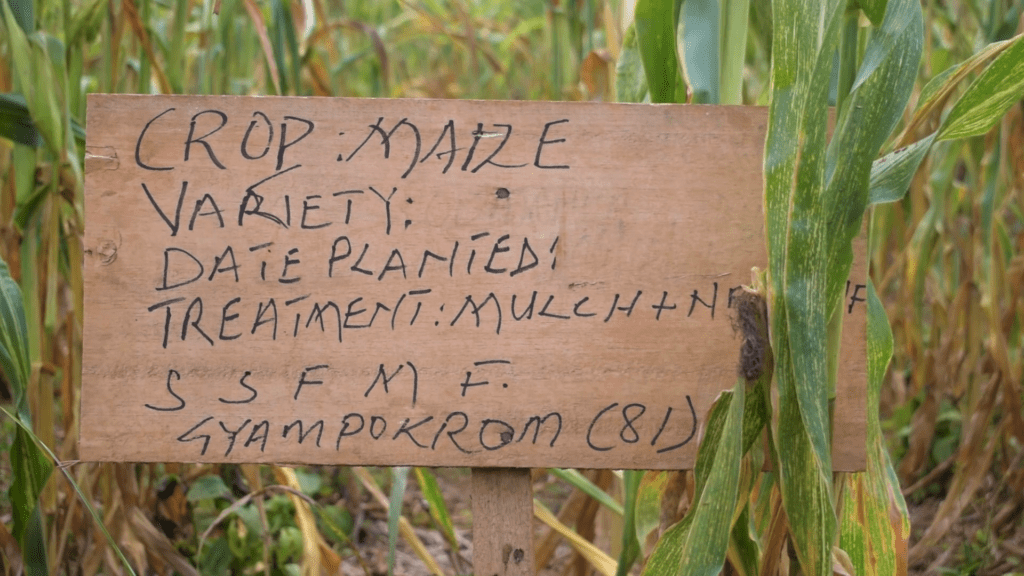 CROP: MAIZE
VARIETY:
DATE PLANTED:
TREATMENT: MULCH +
S S F M F.
GYAMPOKROM (81)